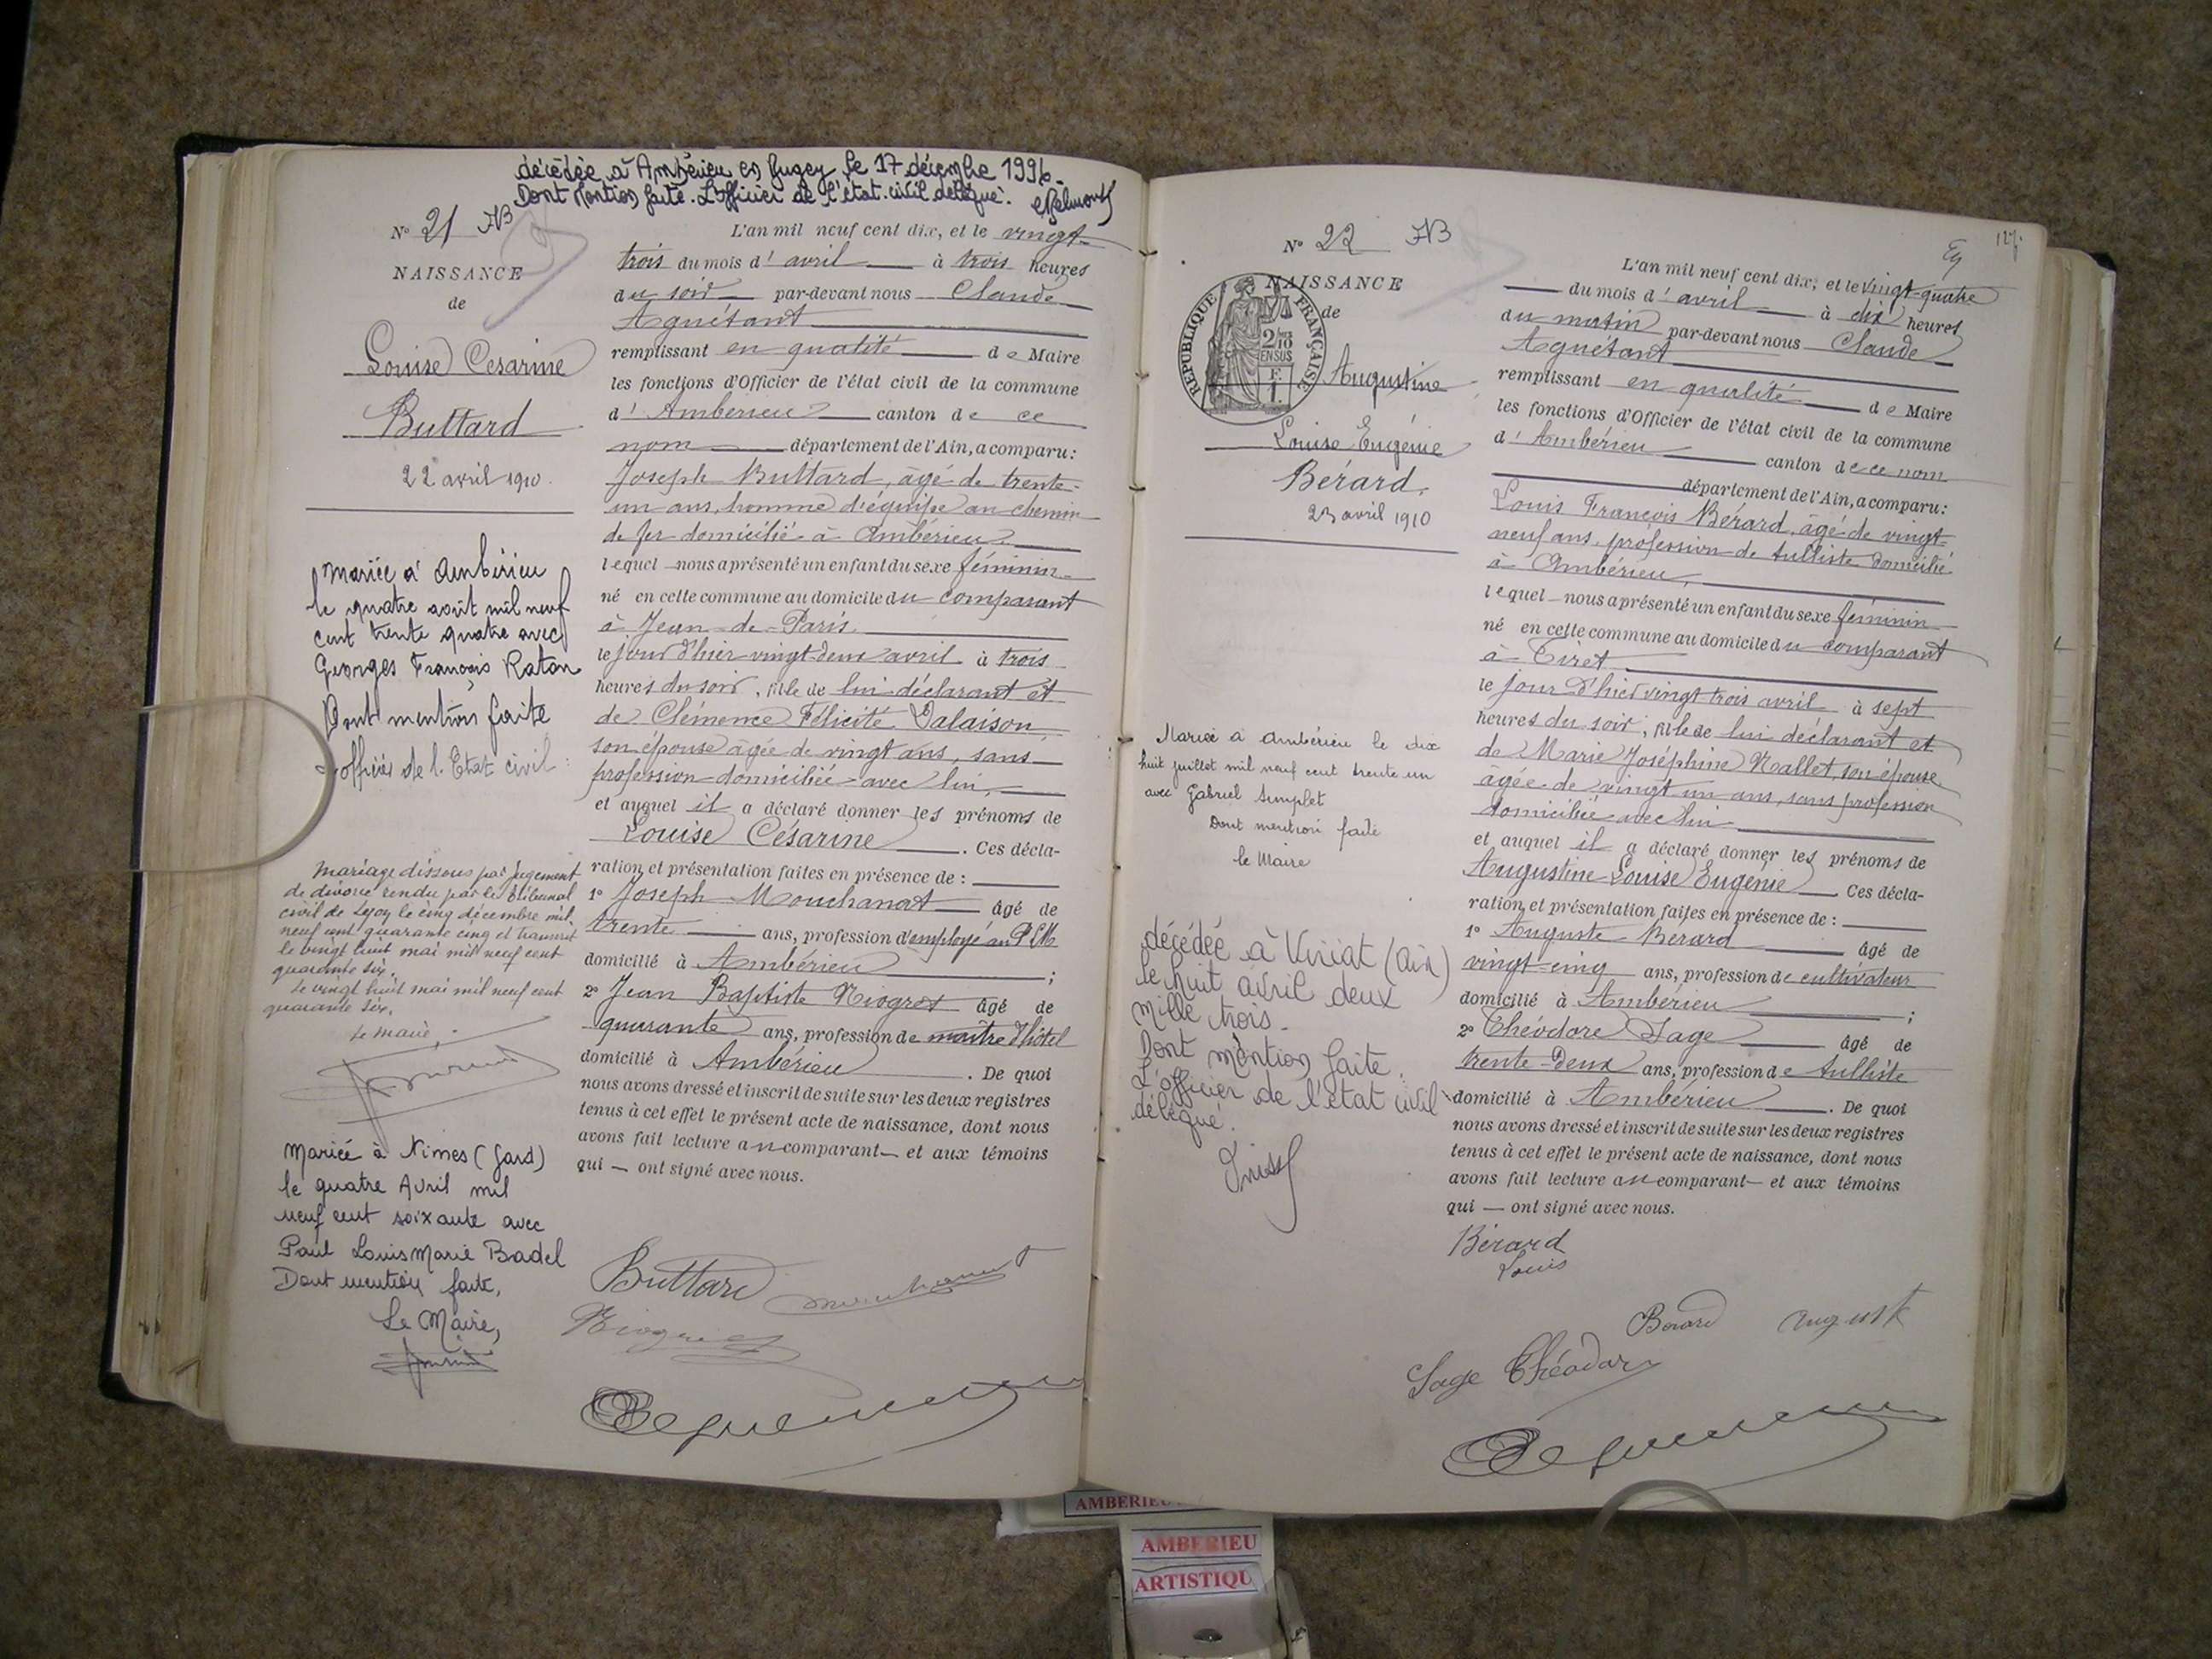 décédée à Ambérieu en Bugey le 17 décembre 1996.
Dont Mention faite. L'officier de l'état-civil délégué.
N° 21
NAISSANCE
de
Louise Césarine
Buttard
22 avril 1910.
Mariée à Ambérieu
le quatre août mil neuf
cent trente quatre avec
Georges François Ratan
Dont mention faite
L'officier de l'Etat civil :
Mariage dissous par jugement
de divorce rendu par le tribunal
civil de Lyon le cinq décembre mil
neuf cent quarante cinq et transcrit
le vingt huit mai mil neuf cent
quarante six.
Le vingt huit mai mil neuf cent
quarante six.
Le maire,
Mariée à Nimes (Gard)
le quatre Avril mil
neuf cent soixante avec
Paul Louis Marie Badel
Dont mention faite,
Le Maire,
L'an mil neuf cent dix, et le vingt-
trois du mois d'avril à trois heures
du soir par-devant nous Claude
Aguétant
remplissant en qualité de Maire
les fonctions d'Officier de l'état civil de la commune
d'Ambérieu canton de ce
nom département de l'Ain, a comparu :
Joseph Buttard, âgé de trente-
un ans, homme d'équipe au chemin
de fer domicilié à Ambérieu
lequel nous a présenté un enfant du sexe féminin
né en cette commune au domicile du comparant
à Jean-de-Paris
le jour d'hier vingt-deux avril à trois
heures du soir, fille de lui déclarant et
de Clémence Félicité Salaison,
son épouse âgée de vingt ans, sans
profession domiciliée avec lui,
et auquel il a déclaré donner les prénoms de
Louise Césarine. Ces décla-
ration et présentation faites en présence de :
1° Joseph Mouchanat âgé de
trente ans, profession d'employé au PLM
domicilié à Ambérieu ;
2° Jean Baptiste Niogret âgé de
quarante ans, profession de maître d'hôtel
domicilié à Ambérieu. De quoi
nous avons dressé et inscrit de suite sur les deux registres
tenus à cet effet le présent acte de naissance, dont nous
avons fait lecture au comparant et aux témoins
qui ont signé avec nous.
Buttard
Mouchanat
Niogret
N° 22
NAISSANCE
de
REPUBLIQUE FRANÇAISE
2/10
EN SUS
Augustine
Louise Eugénie
Bérard.
23 avril 1910
Mariée à Ambérieu le dix
huit juillet mil neuf cent trente un
avec Gabriel Simplet
Dont mention faite
le Maire
décédée à Viriat (Ain)
le huit avril deux
mille trois.
Dont mention faite.
L'officier de l'état civil
délégué.
127.
L'an mil neuf cent dix, et le vingt-quatre
du mois d'avril à dix heures
du matin par-devant nous Claude
Aguétant
remplissant en qualité de Maire
les fonctions d'Officier de l'état civil de la commune
d'Ambérieu canton de ce nom
département de l'Ain, a comparu :
Louis François Bérard, âgé de vingt-
neuf ans, profession de tulliste domicilié
à Ambérieu,
lequel nous a présenté un enfant du sexe féminin
né en cette commune au domicile du comparant
à Tiret
le jour d'hier vingt-trois avril à sept
heures du soir, fille de lui déclarant et
de Marie Joséphine Nallet, son épouse
âgée de vingt un ans, sans profession
domiciliée avec lui
et auquel il a déclaré donner les prénoms de
Augustine Louise Eugénie Ces décla-
ration et présentation faites en présence de :
1° Auguste Bérard âgé de
vingt-cinq ans, profession de cultivateur
domicilié à Ambérieu ;
2° Théodore Sage âgé de
trente-deux ans, profession de tulliste
domicilié à Ambérieu. De quoi
nous avons dressé et inscrit de suite sur les deux registres
tenus à cet effet le présent acte de naissance, dont nous
avons fait lecture au comparant et aux témoins
qui ont signé avec nous.
Bérard
Louis
Bérard Auguste
Sage Théodore
AMBERIEU
AMBERIEU
ARTISTIQU